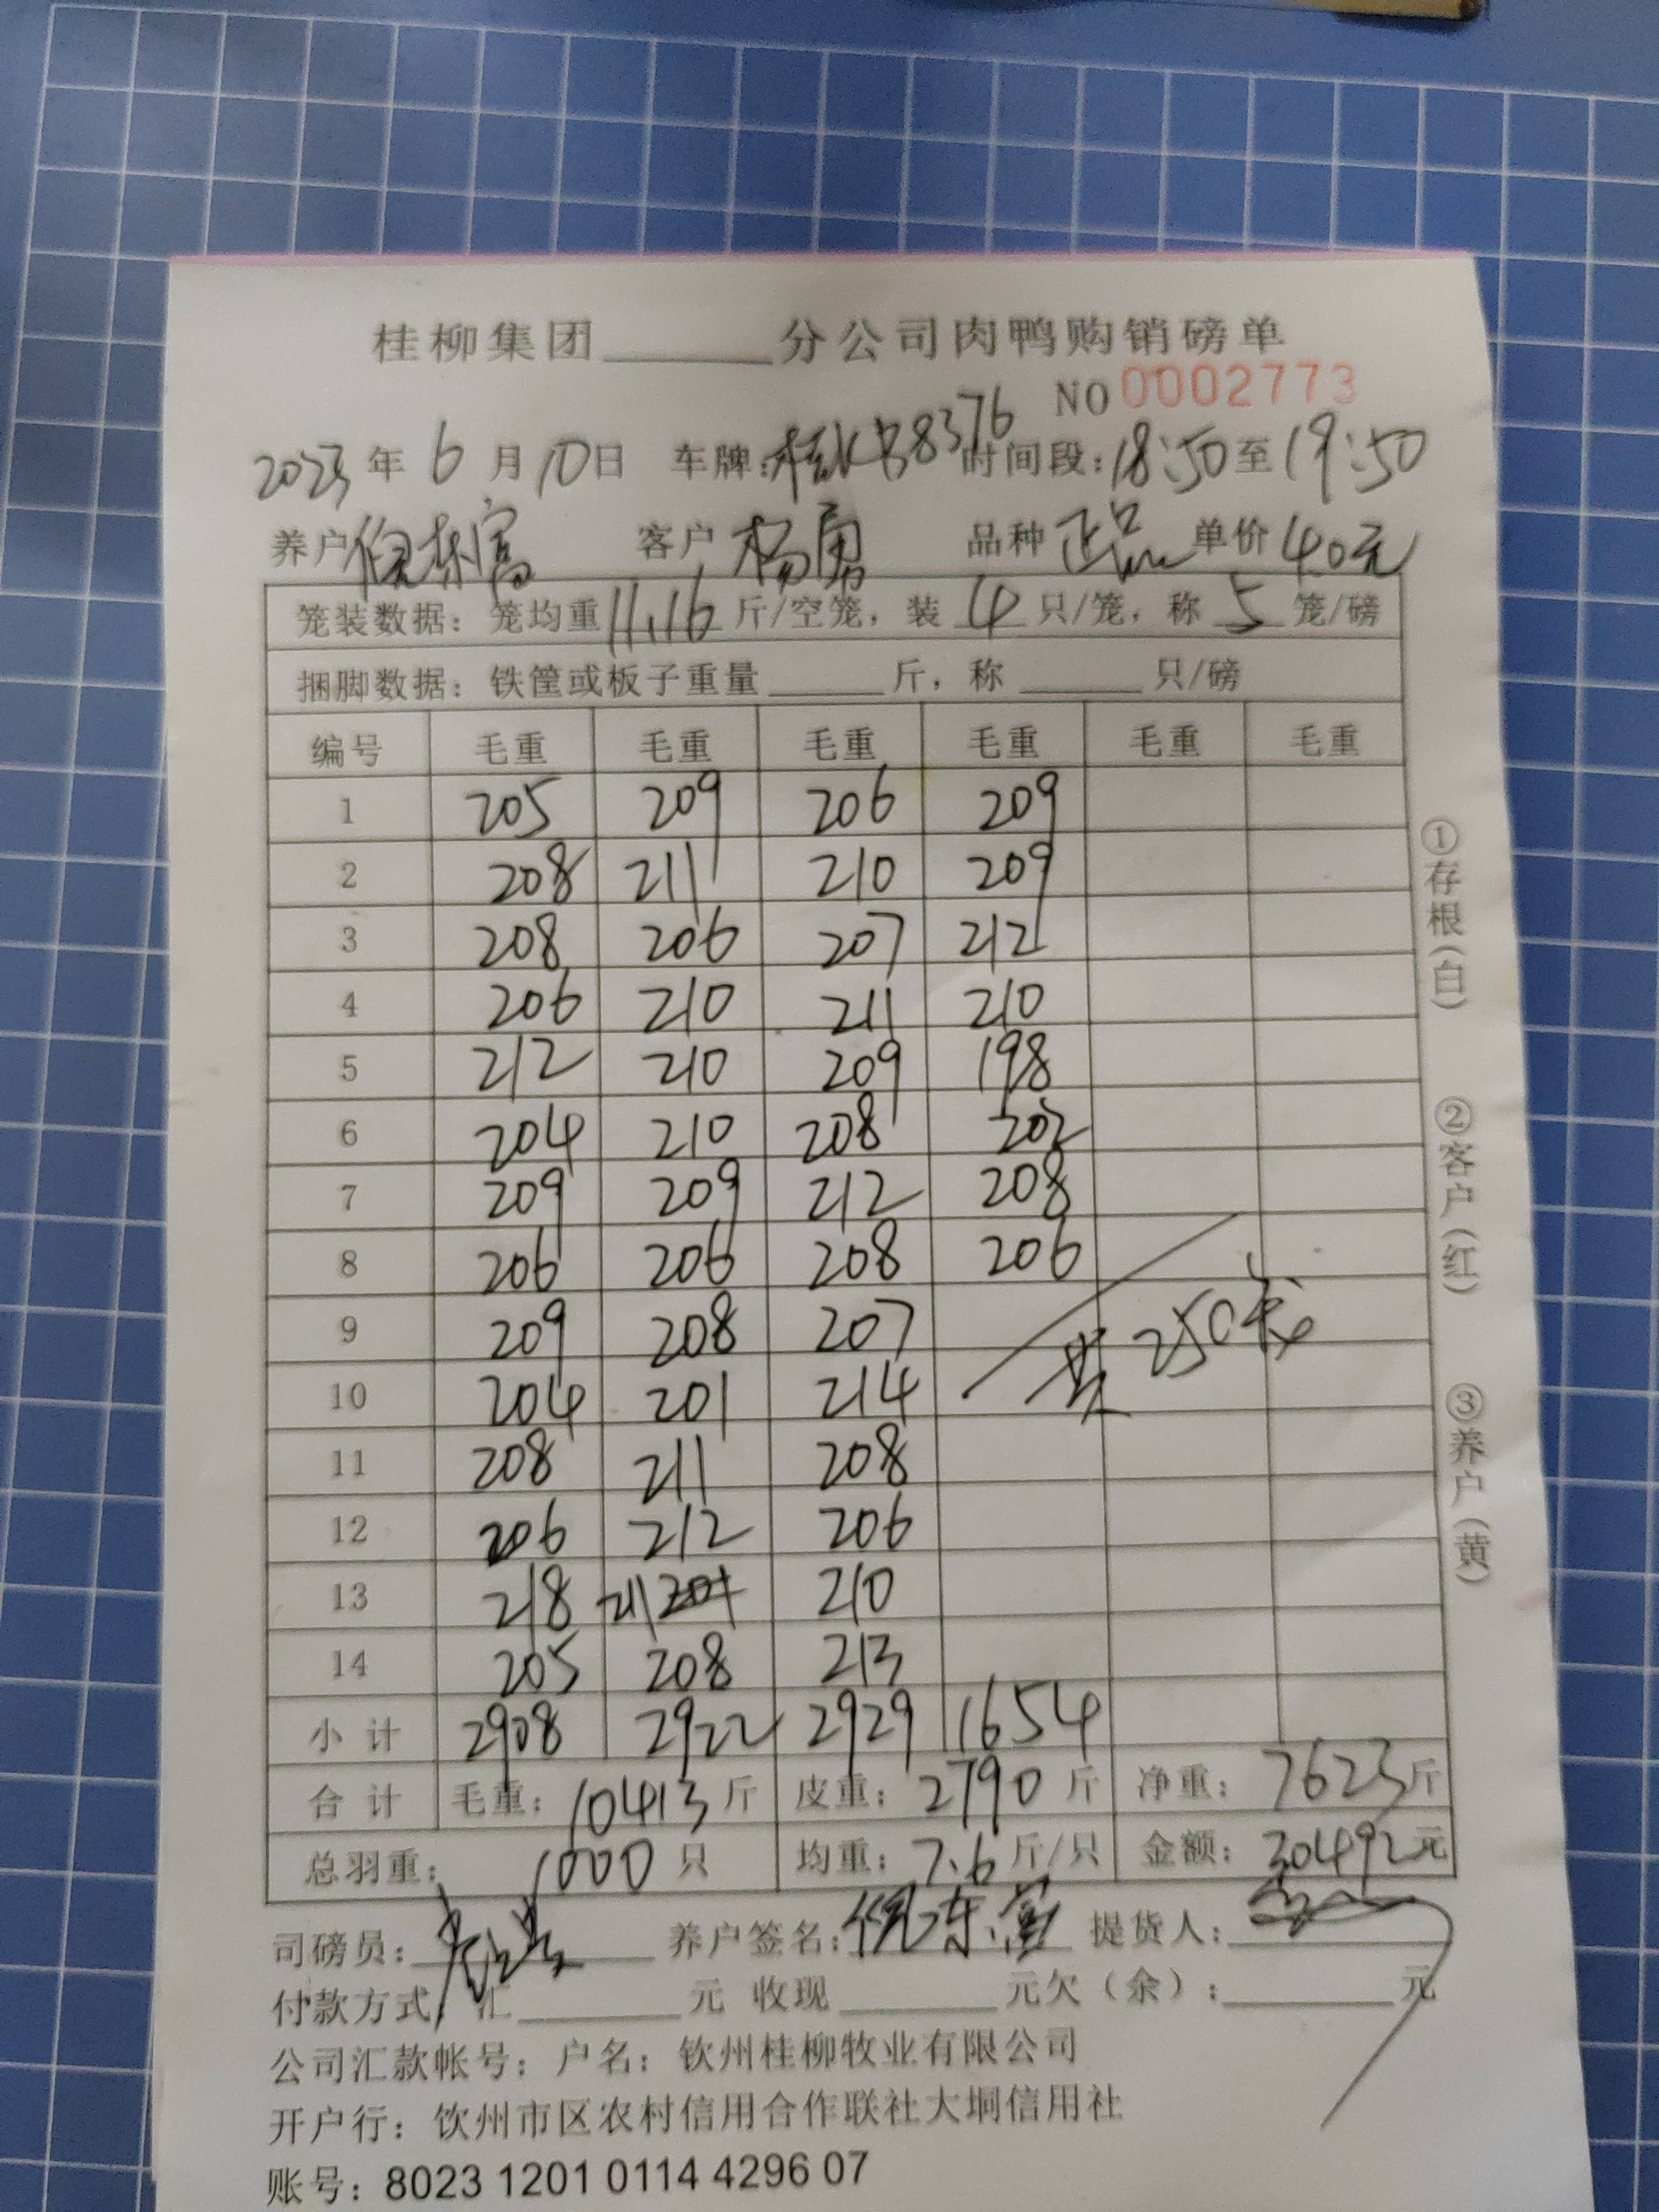 桂柳集团______分公司肉鸭购销磅单
NO 0002773
2023年6月10日 车牌:桂KB8376 时间段:18:50至19:50
养户 倪东富 客户 杨勇 品种 正品 单价 4.0元
笼装数据：笼均重11.16斤/空笼，装4只/笼，称5笼/磅
捆脚数据：铁筐或板子重量______斤，称______只/磅
编号 毛重 毛重 毛重 毛重 毛重 毛重
1 205 209 206 209
2 208 211 210 209
3 208 206 207 212
4 206 210 211 210
5 212 210 209 198
6 204 210 208 202
7 209 209 212 208
8 206 206 208 206
9 209 208 207
共250笼
10 204 201 214
11 208 211 208
12 206 212 206
13 218 211 210
14 205 208 213
小计 2908 2922 2929 1654
合计 毛重：10413斤 皮重：2790斤 净重：7623斤
总羽重：1000只 均重：7.6斤/只 金额：30492元
司磅员： 养户签名：倪东富 提货人：
付款方式：汇______元 收现______元欠（余）：______元
公司汇款帐号：户名：钦州桂柳牧业有限公司
开户行：钦州市区农村信用合作联社大垌信用社
账号：8023 1201 0114 4296 07
①存根(白) ②客户(红) ③养户(黄)